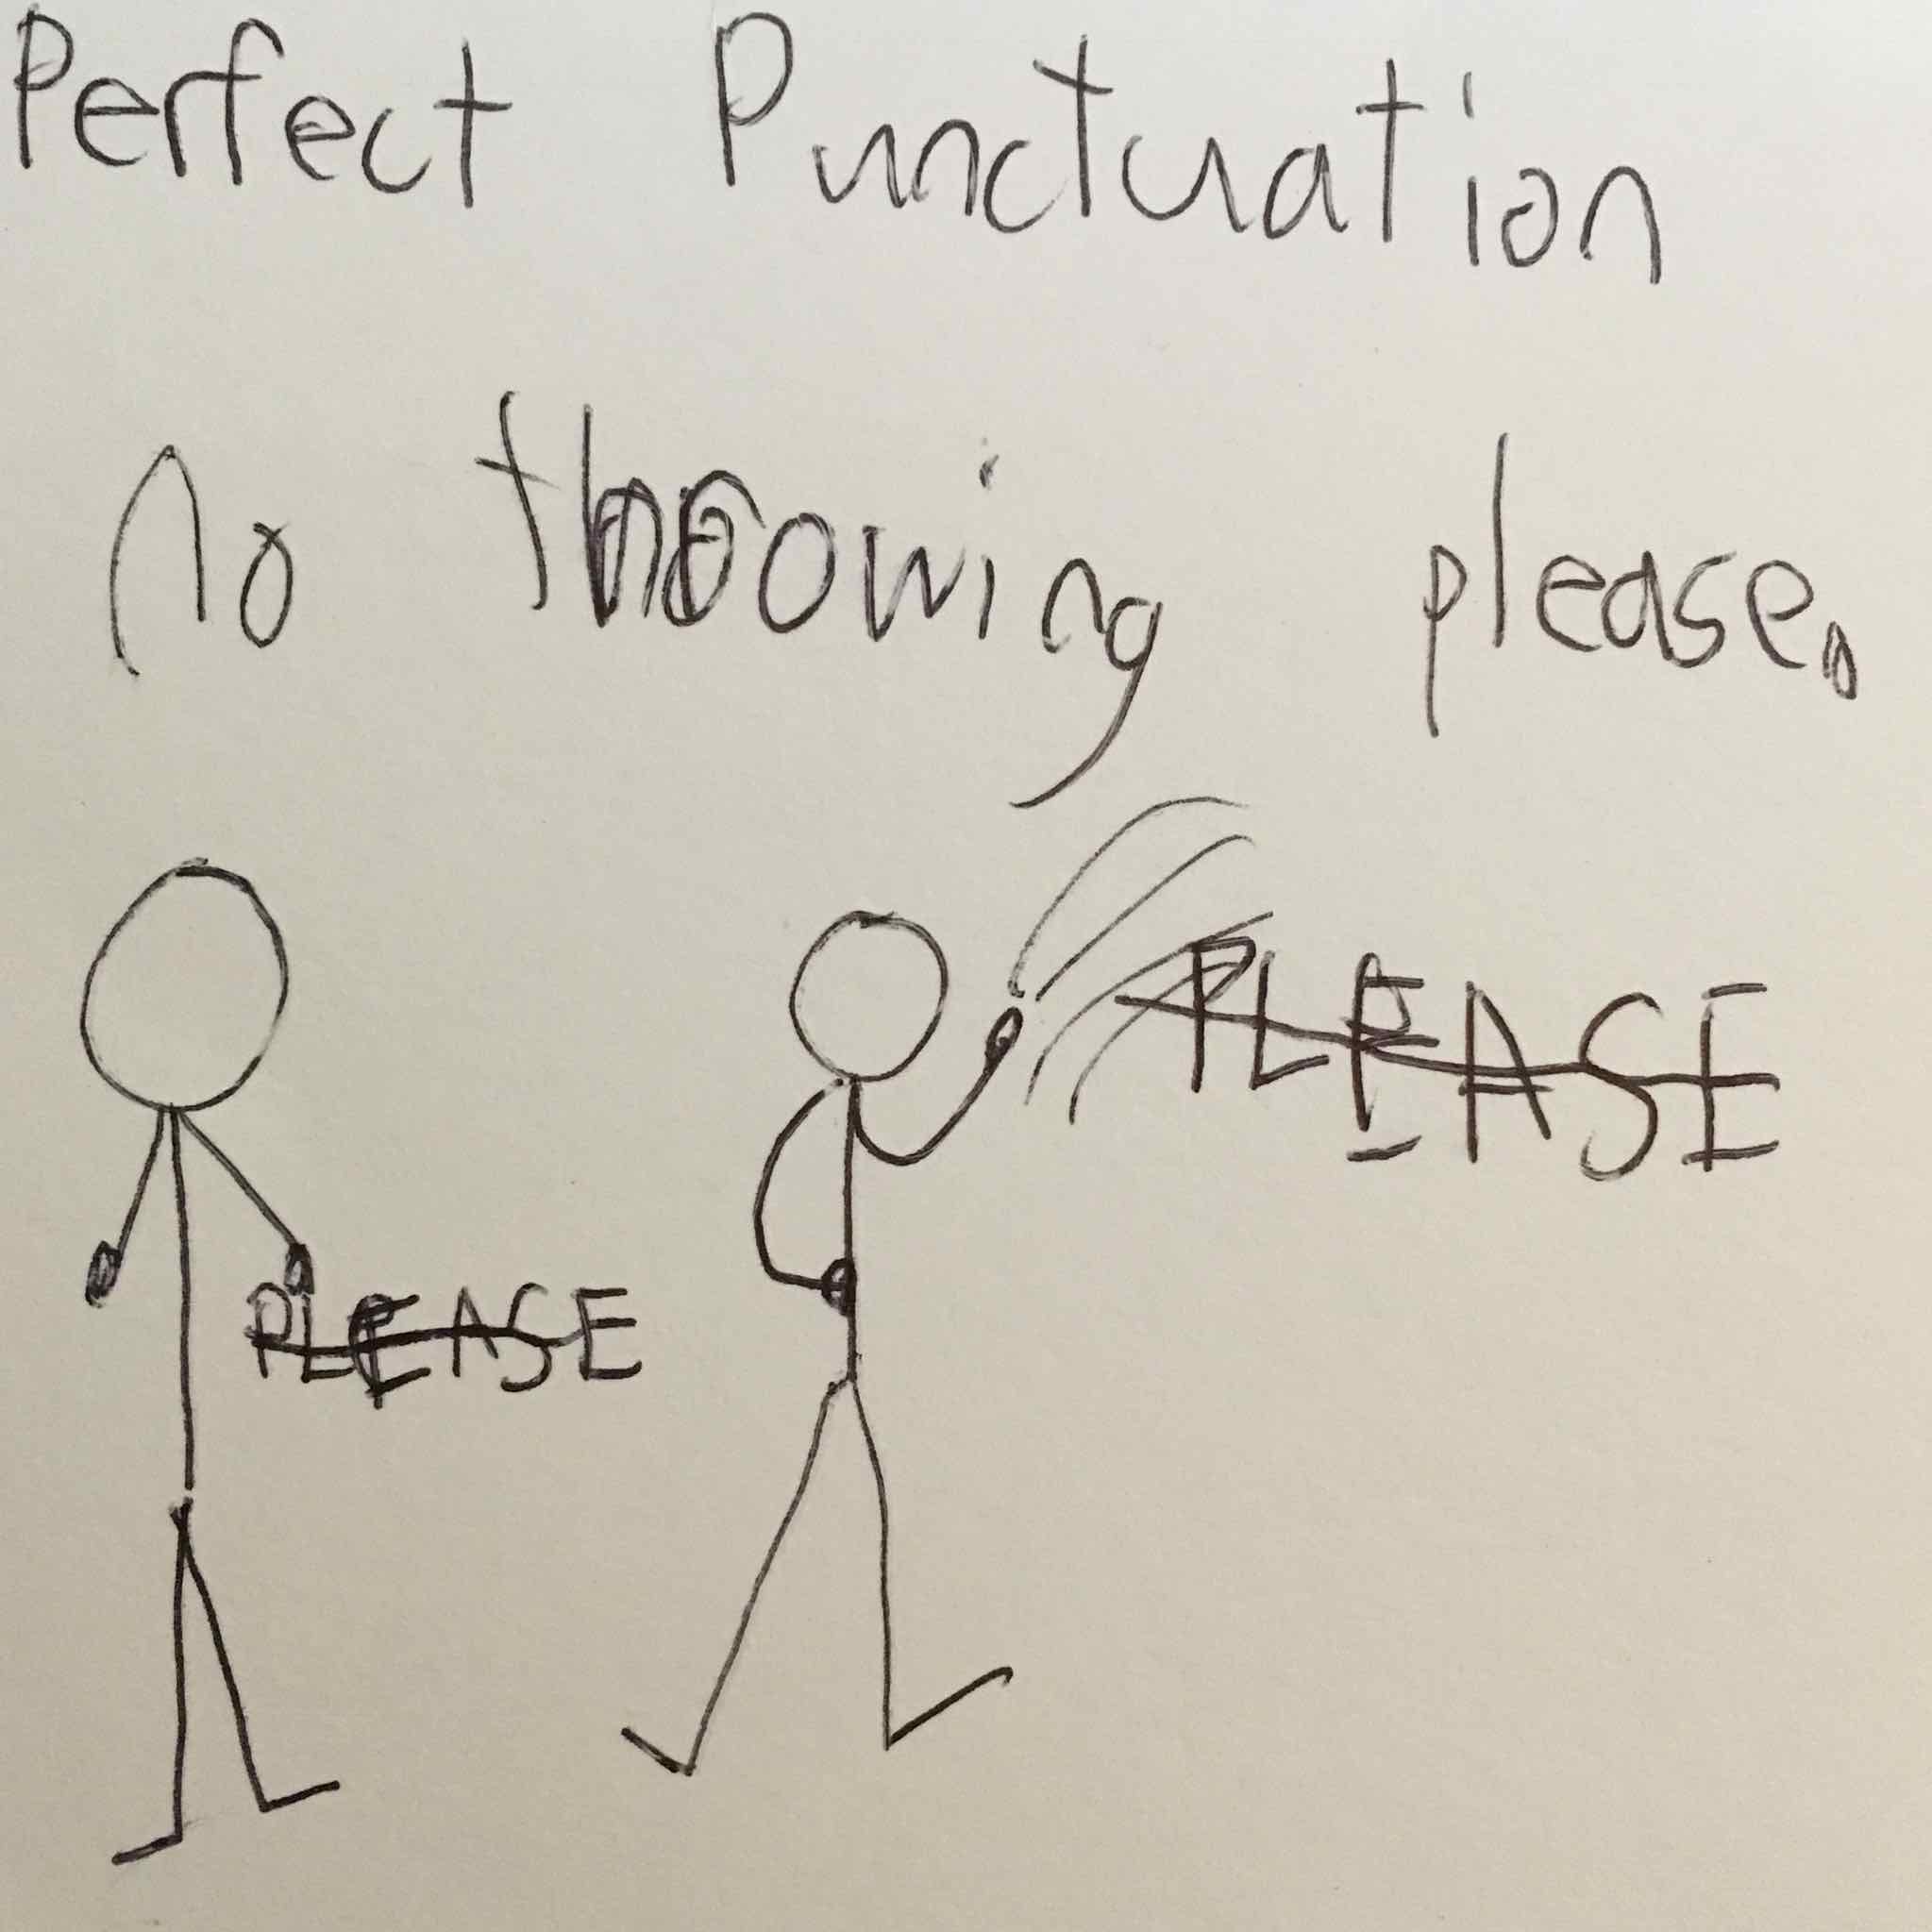 Perfect Punctuation
no throwing please.
PLEASE
PLEASE